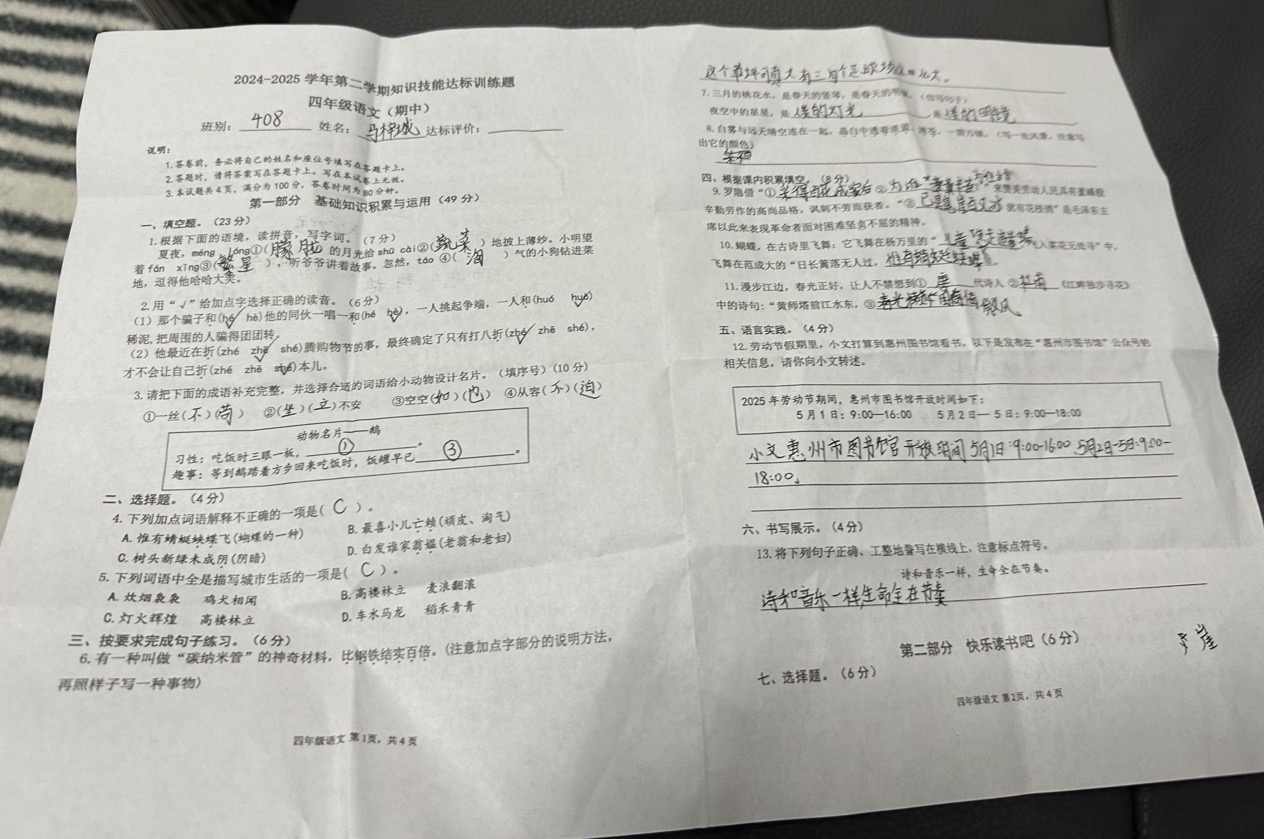 2024-2025 学年第二学期知识技能达标训练题
四年级语文（期中）
班别: 408 姓名: 达标评价:
说明:
1.答卷前，务必将自己的姓名和座位号填写在答题卡上。
2.答题时，请将答案写在答题卡上，写在本试卷上无效。
3.本试题共4页，满分为100分，答卷时间为80分钟。
第一部分 基础知识积累与运用（49分）
一、填空题。（23分）
1.根据下面的语境，读拼音，写字词。（7分）
夏夜，méng lóng①(朦胧)的月光给shū cài②(蔬菜)地披上薄纱。小明望
着fán xīng③(繁星)，听爷爷讲着故事。忽然，táo ④(淘)气的小狗钻进菜
地，逗得他哈哈大笑。
2.用“√”给加点字选择正确的读音。（6分）
（1）那个骗子和(hé hè)他的同伙一唱一和(hé hè)，一人挑起争端，一人和(huó huò)
稀泥,把周围的人骗得团团转。
（2）他最近在折(zhé zhē shé)腾购物节的事，最终确定了只有打八折(zhé zhē shé)，
才不会让自己折(zhé zhē shé)本儿。
3.请把下面的成语补充完整，并选择合适的词语给小动物设计名片。（填序号）（10分）
①一丝(不)(苟) ②(坐)(立)不安 ③空空(如)(也) ④从容(不)(迫)
动物名片——鹅
习性：吃饭时三眼一板，①。
趣事：等到鹅踏着方步回来吃饭时，饭罐早已③。
二、选择题。（4分）
4.下列加点词语解释不正确的一项是( C )。
A.惟有蜻蜓蛱蝶飞(蝴蝶的一种) B.最喜小儿亡赖(顽皮、淘气)
C.树头新绿未成阴(阴暗) D.白发谁家翁媪(老翁和老妇)
5.下列词语中全是描写城市生活的一项是( C )。
A.炊烟袅袅 鸡犬相闻 B.高楼林立 麦浪翻滚
C.灯火辉煌 高楼林立 D.车水马龙 稻禾青青
三、按要求完成句子练习。（6分）
6.有一种叫做“碳纳米管”的神奇材料，比钢铁结实百倍。(注意加点字部分的说明方法，
再照样子写一种事物)
四年级语文 第1页，共4页
这个草坪可真大有三四个足球场这么大。
7.三月的桃花水，是春天的竖琴，是春天的明镜。（仿写句子）
夜空中的星星，是
8.白雾与远天晴空连在一起，
出它的颜色）
四、根据课内积累填空。（8分）
9.罗隐借“①采得百花成蜜后②为谁辛苦为谁甜”来赞美劳动人民具有重峰般
辛勤劳作的高尚品格，讽刺不劳而获者。“③已是悬崖百丈冰 犹有花枝俏”是毛泽东主
席以此来表现革命者面对困难坚贞不屈的精神。
10.蝴蝶，在古诗里飞舞：它飞舞在杨万里的“儿童急走追黄蝶 飞入菜花无处寻”中，
飞舞在范成大的“日长篱落无人过，惟有蜻蜓蛱蝶飞。
11.漫步江边，春光正好，让人不禁想到①唐代诗人②杜甫《江畔独步寻花》
中的诗句：“黄师塔前江水东，③春光懒困倚微风
五、语言实践。（4分）
12.劳动节假期里，小文打算到惠州图书馆看书，以下是发布在“惠州市图书馆”公众号的
相关信息，请你向小文转述。
2025年劳动节期间，惠州市图书馆开放时间如下：
5月1日：9:00—16:00 5月2日— 5日：9:00—18:00
小文惠州市图书馆开放时间5月1日:9:00-16:00 5月2日-5日:9:00-
18:00。
六、书写展示。（4分）
13.将下列句子正确、工整地誊写在横线上，注意标点符号。
诗和音乐一样，生命全在节奏。
诗和音乐一样生命全在节奏
第二部分 快乐读书吧（6分）
崖
七、选择题。（6分）
四年级语文 第2页，共4页